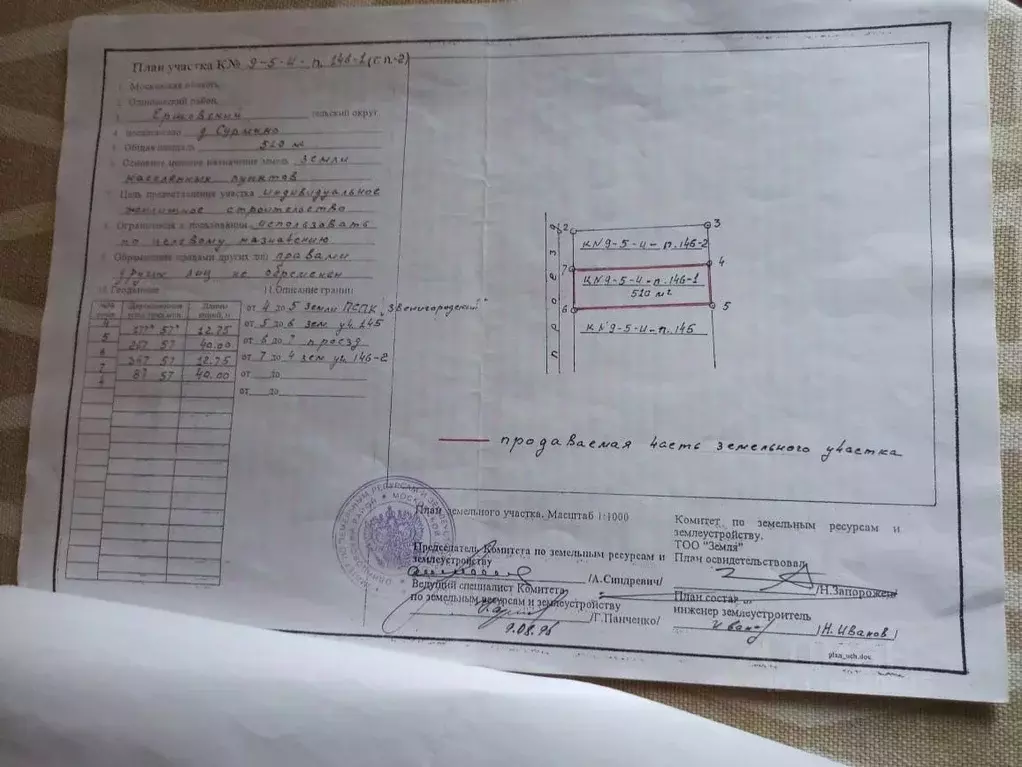 План участка К№ 9-5-И-п. 146-1 (с п.-2)
1. Московская область,
2. Одинцовский район,
3. Ершовский сельский округ
4. д. Сурмино
5. Общая площадь 510 м²
6. Основное целевое назначение земель Земли
населённых пунктов
7. Цель предоставления участка индивидуальное
жилищное строительство
8. Ограничения в пользовании использовать
по целевому назначению
9. Обременения правами других лиц правами
других лиц не обременен
10. Геоданные 11. Описание границ
№№ точек Дирекционные углы, град.мин Длины линий, м
4
177° 57' 12.75
5
267 57 40.00
6
357 57 12.75
7
87 57 40.00
4
от 4 до 5 земли ПСПК "Звенигородский"
от 5 до 6 зем. уч. 145
от 6 до 7 проезд
от 7 до 4 зем. уч. 146-2
от до
от до
2
3
К№ 9-5-И-п. 146-2
7
4
К№ 9-5-И-п. 146-1
510 м²
6
5
К№ 9-5-И-п. 145
проезд
продаваемая часть земельного участка
План земельного участка. Масштаб 1:1000
Председатель Комитета по земельным ресурсам и
землеустройству
/А.Синдревич/
Ведущий специалист Комитета
по земельным ресурсам и землеустройству
/Г.Панченко/
9.08.96
Комитет по земельным ресурсам и
землеустройству.
ТОО "Земля"
План освидетельствовал
/Н.Запорожец/
План состав
инженер землеустроитель
/Н.Иванов/
plan_uch.doc